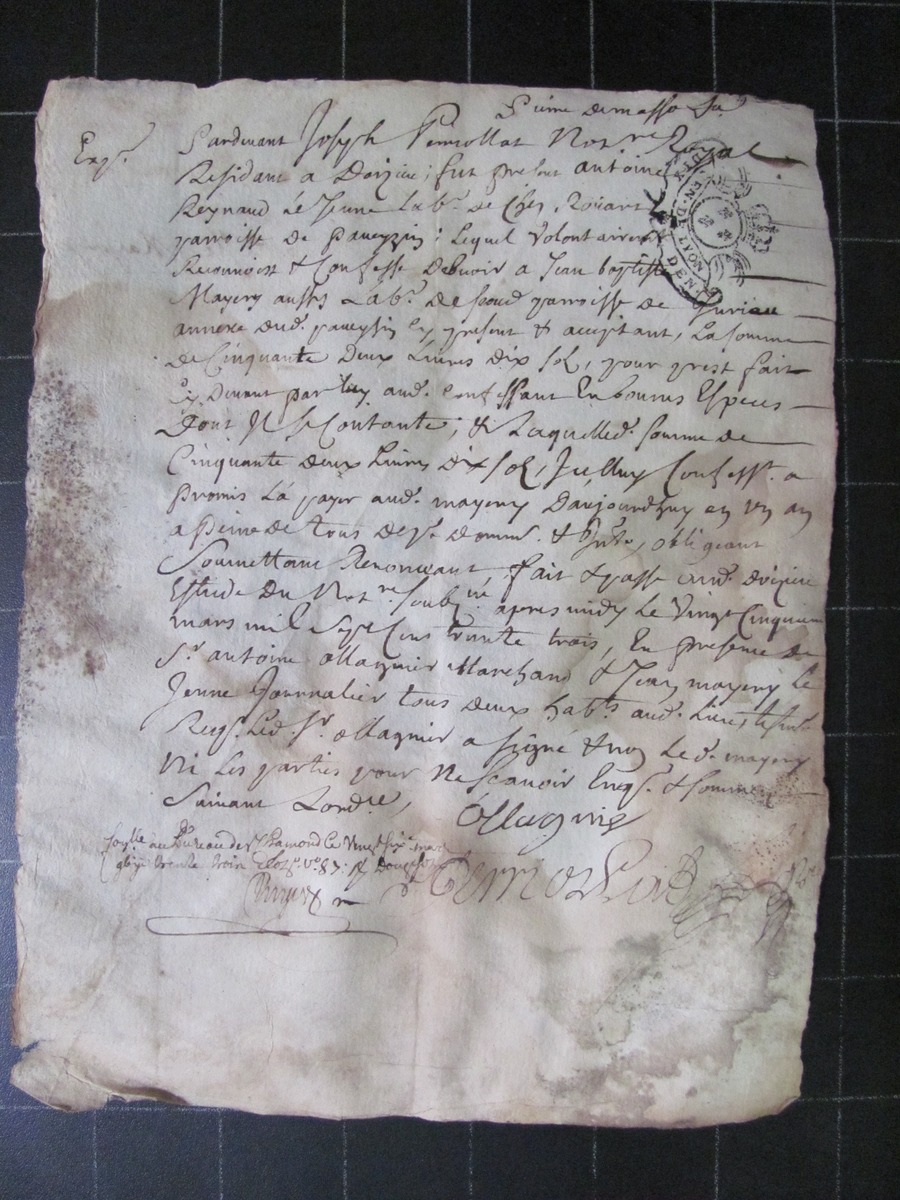 Exp.
Pardevant Joseph Perriollat Notre Royal
Residant a Doizieu; fut present antoine
Reynaud le Jeune Labr. de Chez
parroisse de pavezin: Lequel Volontairemt
Reconnoist & Confesse debvoir a Jean baptiste
Mayery aussy Labr. de parroisse de
annexe dud. pavezin Cy present & acceptant, La somme
de Cinquante deux Livres dix sol, pour prest fait
Cy devant par luy aud. Confessant En bonnes Especes
dont Il se Contante, & Laquelled. somme de
Cinquante deux Livres dix sol, Icelluy Confesst. a
promis La payer aud. mayery Daujourdhuy en un an
a peine de tous obligeant
Soumettant Renonceant, fait & passé aud. doizieu
Estude du Notre soubzné apres midy le Vingt Cinquieme
mars mil sept Cens trente trois, En presence de
Sr. antoine ollagnier Marchand & Jean mayery le
Jeune Journalier tous deux habts. aud. Lieu,
Reqs. Led. Sr. ollagnier a signé & non Led. mayery
Ni Les parties pour Ne scavoir Enqs. & sommes
Suivant Lordce,
Ollagnier
au Bureau de St. Chamond le Vingt six mars
trente trois
Perriollat
DIX DEN. DE LYON